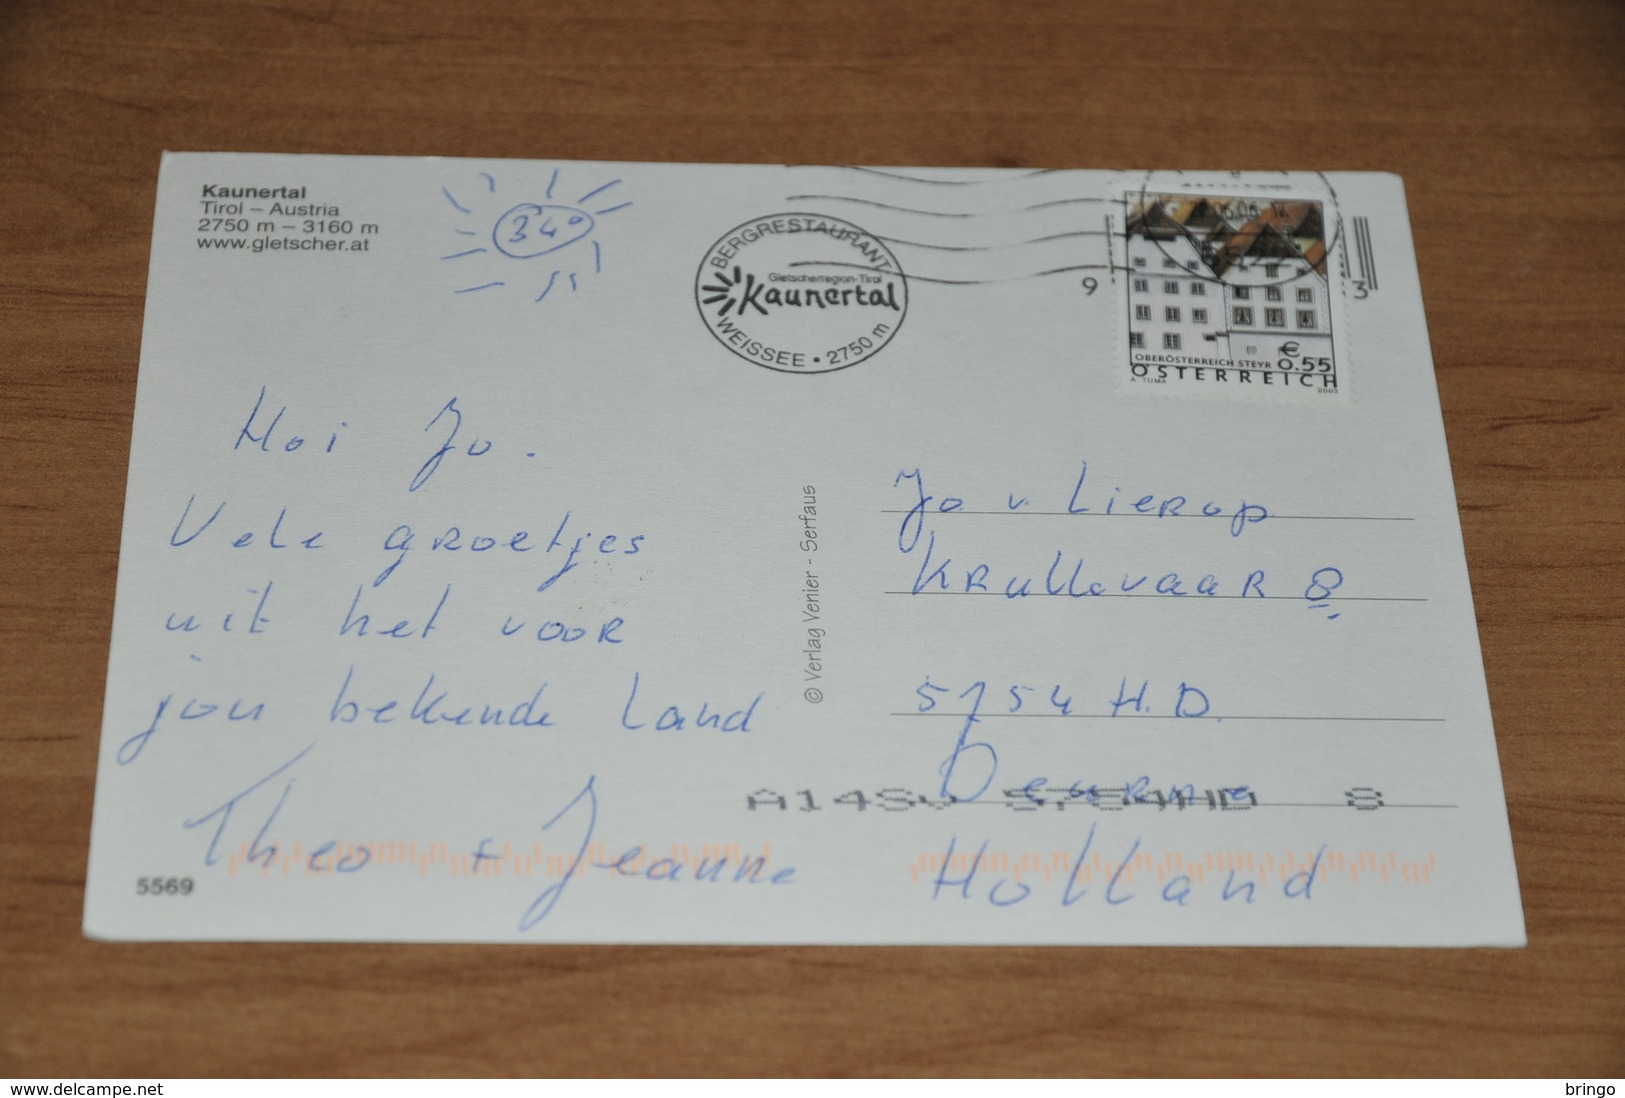 Kaunertal
Tirol – Austria
2750 m – 3160 m
www.gletscher.at
34°
BERGRESTAURANT
Gletscherregion-Tirol
Kaunertal
WEISSEE • 2750 m
9
3
OBERÖSTERREICH STEYR
€ 0.55
ÖSTERREICH
A. TUMA
2003
Hoi Jo.
Vele groetjes
uit het voor
jou bekende land
Theo + Jeanne
5569
© Verlag Venier - Serfaus
Jo v. Lierop
Krullevaar 8
5754 H.D.
Deurne
5754HD 8
Holland
www.delcampe.net
bringo